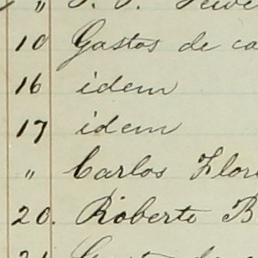 "
10 Gastos de ca
16 idem
17 idem
" Carlos Flor
20. Roberto B
21 Gast